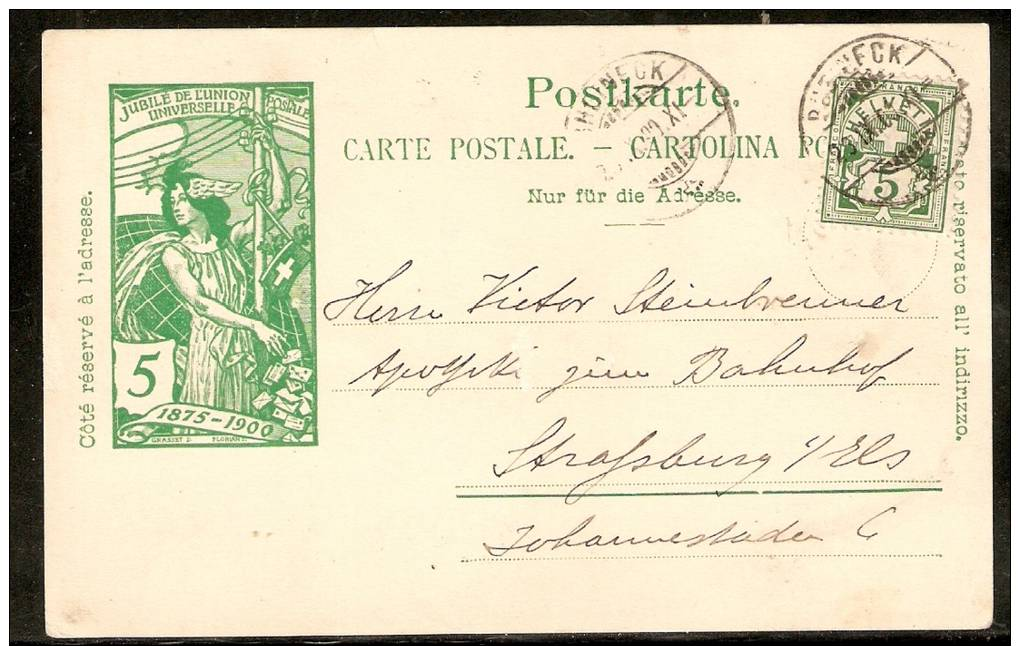 JUBILÉ DE L'UNION
POSTALE
UNIVERSELLE
5
1875-1900
GRASSET D. FLORIAN S.
Côté réservé à l'adresse.
Postkarte.
CARTE POSTALE. — CARTOLINA PO
Nur für die Adresse.
riservato all' indirizzo.
RHEINECK
XI.00
HELVETIA
FRANCO
5
Herrn Victor Steinbrenner
zum Bahnhof
Straßburg i/Els
Johannesstaden 6